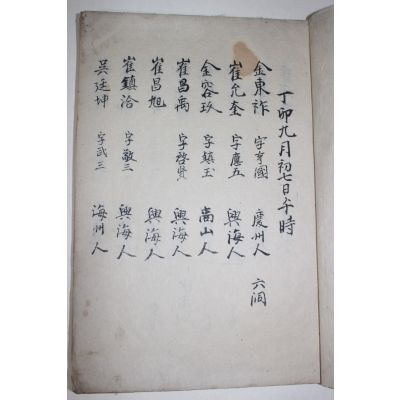 丁卯九月初七日午時
金東祚 字亨國 慶州人 六洞
崔允奎 字應五 興海人
金容玖 字鎭玉 高山人
崔昌禹 字啓賢 興海人
崔昌旭 興海人
崔鎭洽 字敬三 興海人
吳廷坤 字武三 海州人